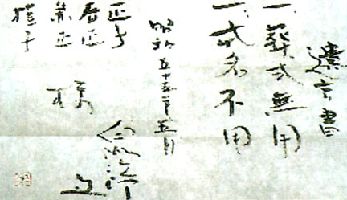 遺言書
一、葬式無用
一、戒名不用
昭和五十五年五月
正子
春正
兼正
桂子
様
白洲次郎